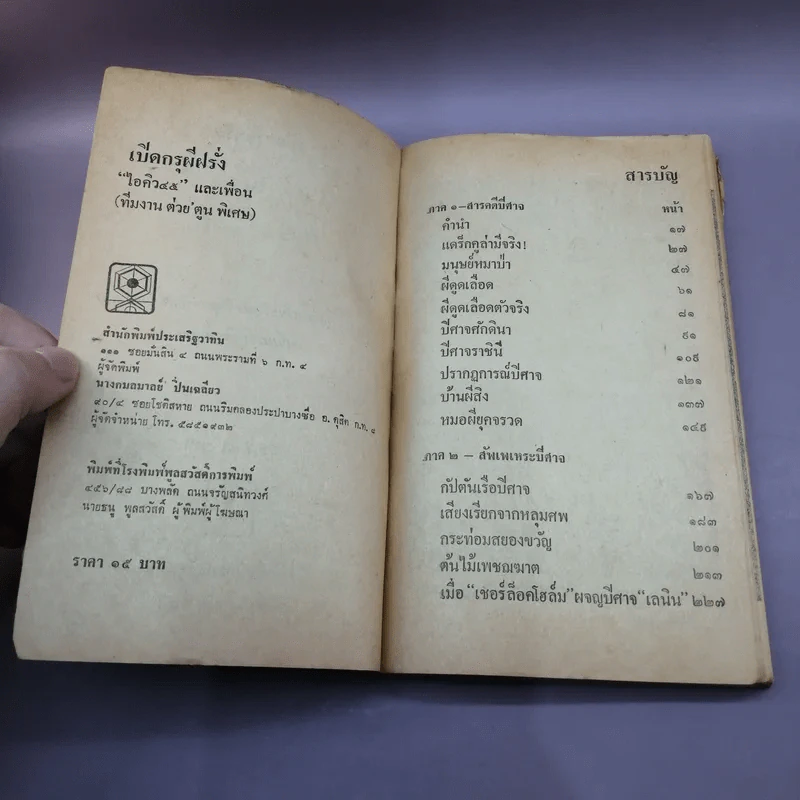 เปิดกรุผีฝรั่ง
“ไอคิว๔๕” และเพื่อน
(ทีมงาน ต่วย'ตูน พิเศษ)
สำนักพิมพ์ประเสริฐวาทิน
๑๑๑ ซอยมั่นสิน ๔ ถนนพระรามที่ ๖ ก.ท. ๔
ผู้จัดพิมพ์
นางกมลมาลย์ ปิ่นเฉลียว
๙๐/๔ ซอยโชติสหาย ถนนริมคลองประปาบางซื่อ อ.ดุสิต ก.ท. ๘
ผู้จัดจำหน่าย โทร. ๕๘๕๑๙๓๒
พิมพ์ที่โรงพิมพ์พูลสวัสดิ์การพิมพ์
๔๕๖/๘๘ บางพลัด ถนนจรัญสนิทวงศ์
นายธนู พูลสวัสดิ์ ผู้พิมพ์ผู้โฆษณา
ราคา ๑๕ บาท
สารบัญ
ภาค ๑–สารคดีปีศาจ หน้า
คำนำ ๑๗
แดร็กคูล่ามีจริง! ๒๗
มนุษย์หมาป่า ๔๗
ผีดูดเลือด ๖๑
ผีดูดเลือดตัวจริง ๘๑
ปีศาจศักดินา ๙๑
ปีศาจราชินี ๑๐๙
ปรากฏการณ์ปีศาจ ๑๒๑
บ้านผีสิง ๑๓๗
หมอผียุคจรวด ๑๔๙
ภาค ๒ – สัพเพเหระปีศาจ
กัปตันเรือปีศาจ ๑๖๗
เสียงเรียกจากหลุมศพ ๑๘๓
กระท่อมสยองขวัญ ๒๐๑
ต้นไม้เพชฌฆาต ๒๑๓
เมื่อ “เชอร์ล็อคโฮล์ม” ผจญปีศาจ “เลนิน” ๒๒๗